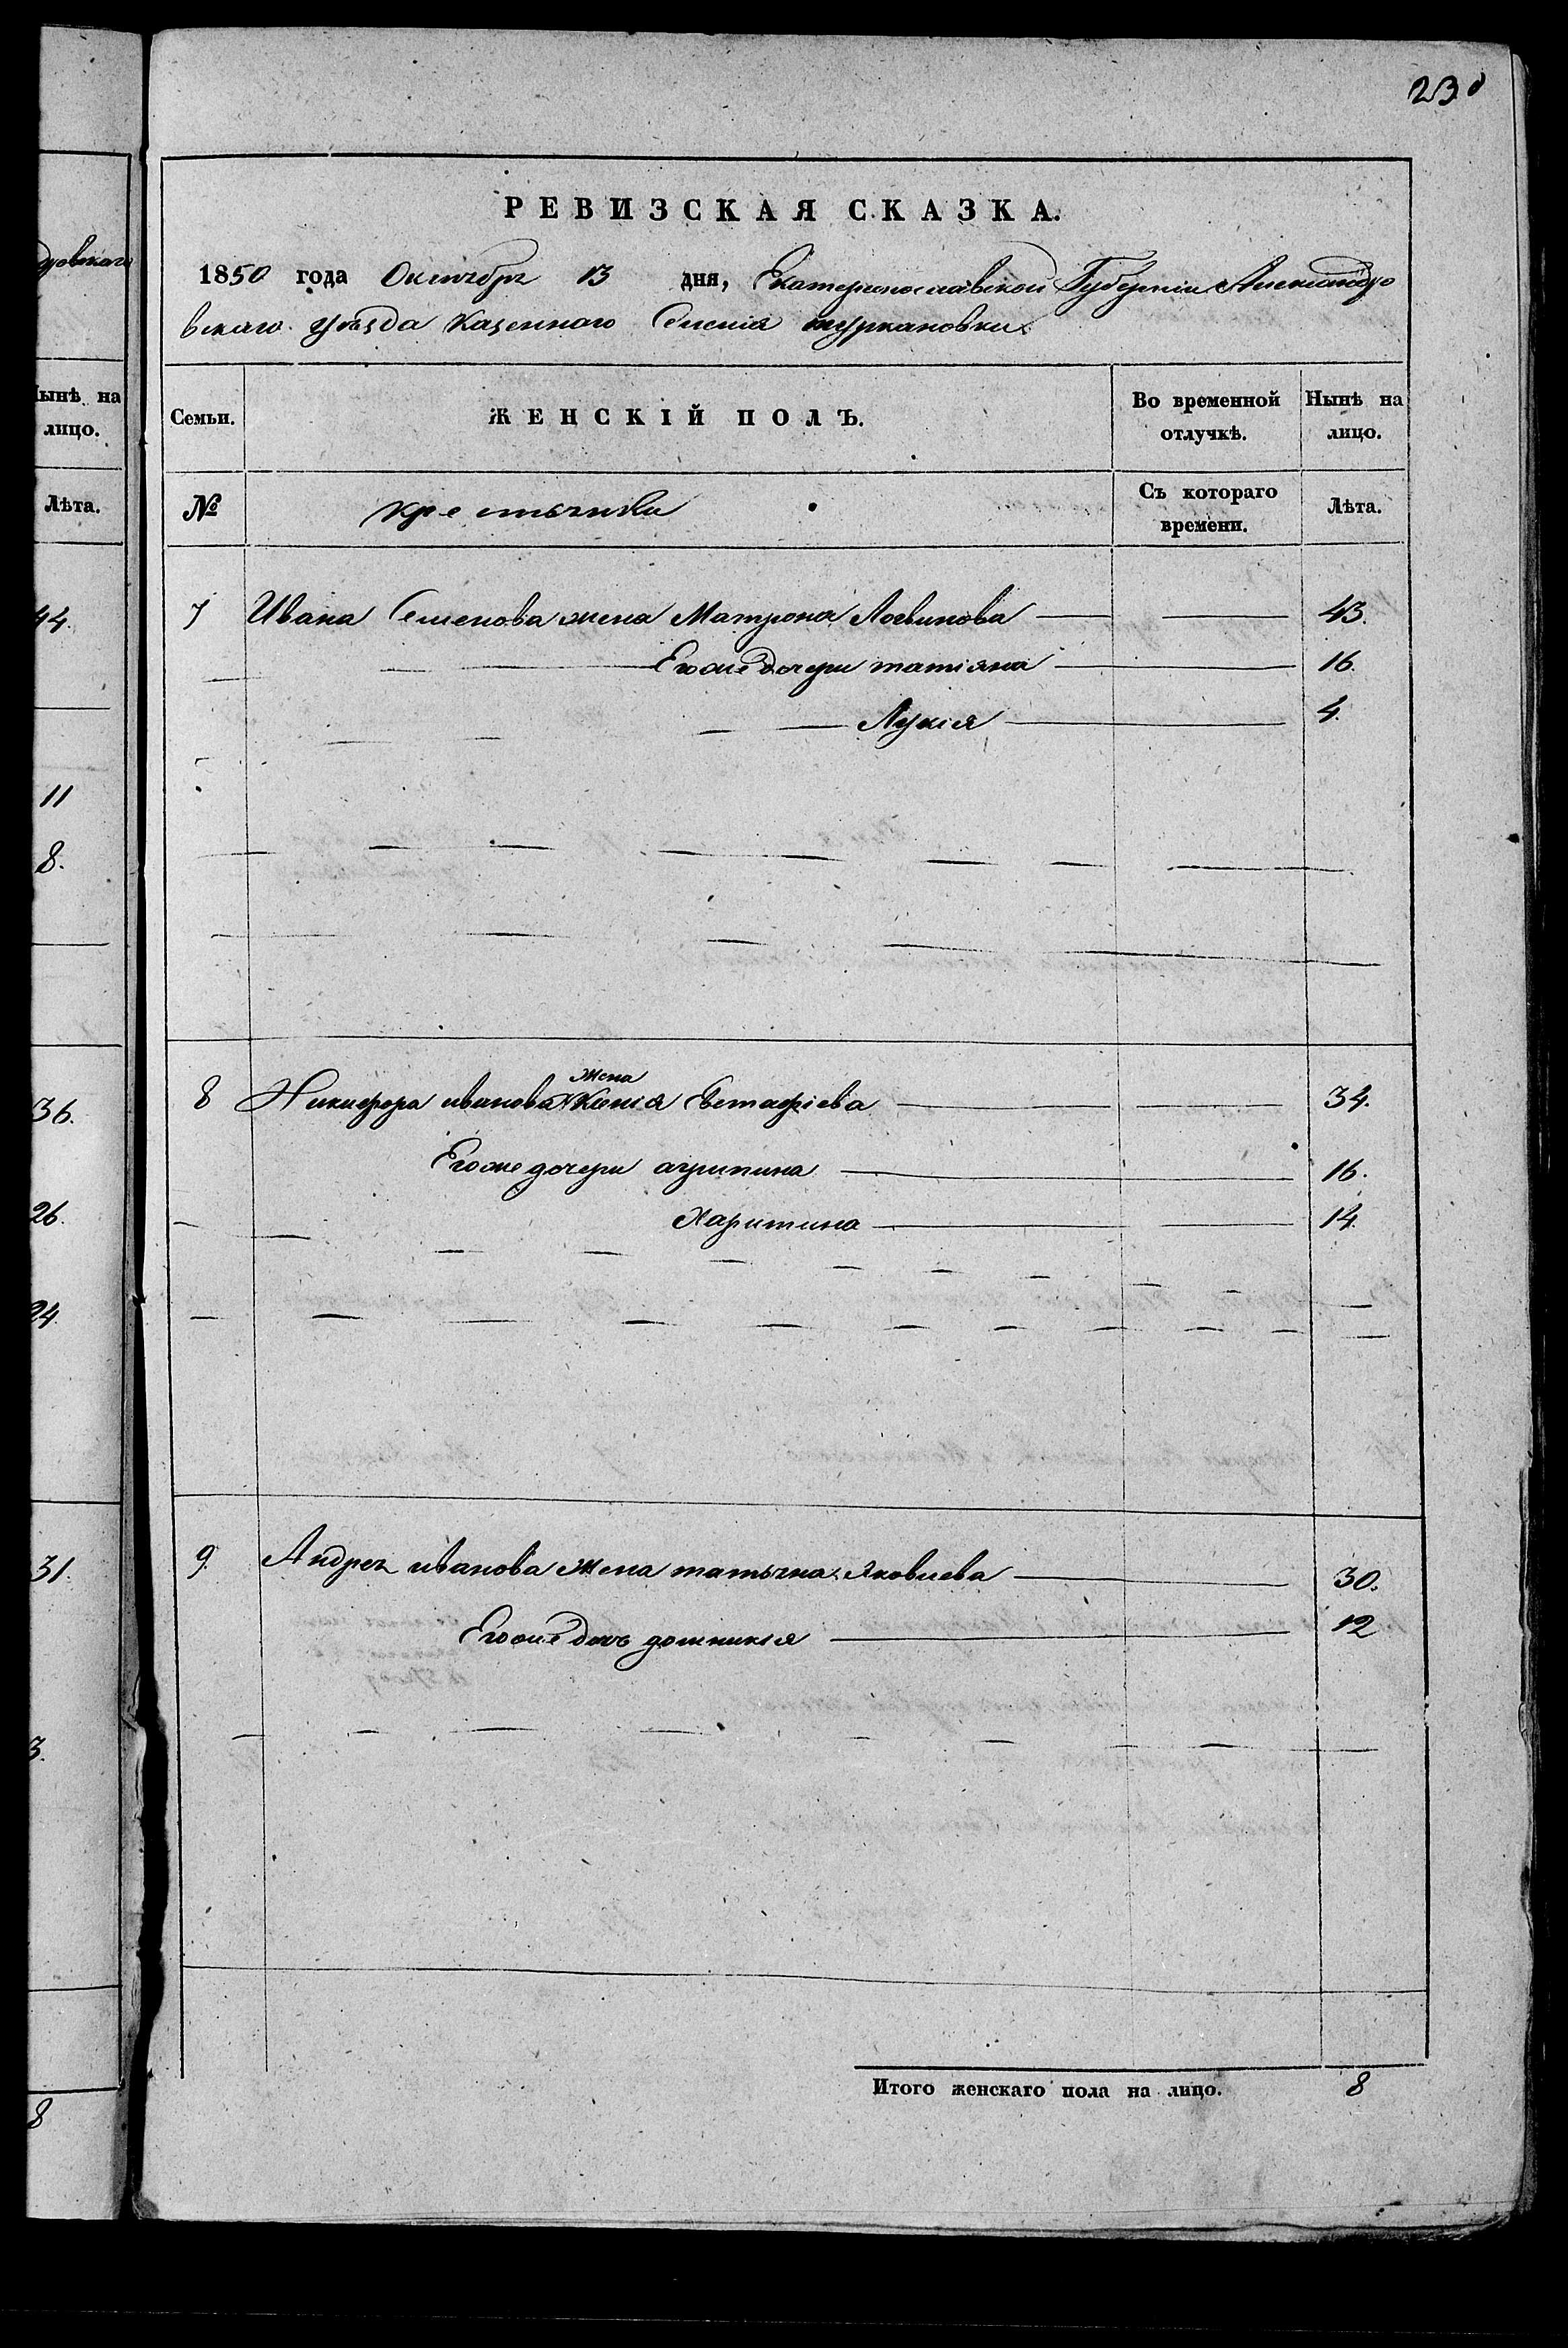 230
РЕВИЗСКАЯ СКАЗКА.
1850 года Октября 13 дня, Екатеринославской Губерніи Александро
вскаго уѣзда Казенного Селенія туркановки
Семьи. ЖЕНСКІЙ ПОЛЪ. Во временной отлучкѣ. Нынѣ на лицо.
№ крестьянки Съ котораго времени. Лѣта.
7 Ивана Семенова жена Матрона Логвинова 43.
Его же дочери татіяна 16.
Лукія 4.
жена
8 Никифора иванова Ксенія Евстафіева 34.
Его же дочери агрипина 16.
Харитина 14.
9. Андрея иванова жена татьяна Яковлева 30.
Его же дочь домникія 12
Итого женскаго пола на лицо. 8
дровскаго
Нынѣ на
лицо.
Лѣта.
44.
11
8.
36.
26.
24.
31.
3.
8